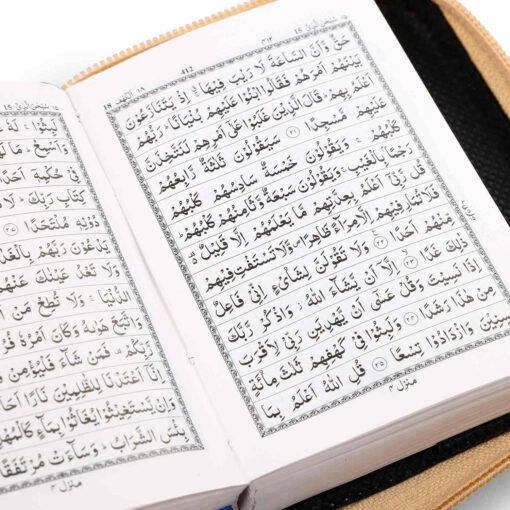 سبحٰن الذی ١٥
412
الكهف ١٨
حَقٌّ وَّاَنَّ السَّاعَةَ لَا رَيْبَ فِيْهَا ۚ اِذْ يَتَنَازَعُوْنَ
بَيْنَهُمْ اَمْرَهُمْ فَقَالُوا ابْنُوْا عَلَيْهِمْ بُنْيَانًا ؕ رَبُّهُمْ
اَعْلَمُ بِهِمْ ؕ قَالَ الَّذِيْنَ غَلَبُوْا عَلٰٓى اَمْرِهِمْ لَنَتَّخِذَنَّ
عَلَيْهِمْ مَّسْجِدًا ﴿٢١﴾ سَيَقُوْلُوْنَ ثَلٰثَةٌ رَّابِعُهُمْ
كَلْبُهُمْ ۚ وَيَقُوْلُوْنَ خَمْسَةٌ سَادِسُهُمْ كَلْبُهُمْ
رَجْمًۢا بِالْغَيْبِ ۚ وَيَقُوْلُوْنَ سَبْعَةٌ وَّثَامِنُهُمْ كَلْبُهُمْ ؕ
قُلْ رَّبِّيْٓ اَعْلَمُ بِعِدَّتِهِمْ مَّا يَعْلَمُهُمْ اِلَّا قَلِيْلٌ
فَلَا تُمَارِ فِيْهِمْ اِلَّا مِرَآءً ظَاهِرًا وَّلَا تَسْتَفْتِ فِيْهِمْ
مِّنْهُمْ اَحَدًا ﴿٢٢﴾ وَلَا تَقُوْلَنَّ لِشَایْءٍ اِنِّيْ فَاعِلٌ
ذٰلِكَ غَدًا ﴿٢٣﴾ اِلَّآ اَنْ يَّشَآءَ اللّٰهُ ؗ وَاذْكُرْ رَّبَّكَ
اِذَا نَسِيْتَ وَقُلْ عَسٰٓى اَنْ يَّهْدِيَنِ رَبِّيْ لِاَقْرَبَ
مِنْ هٰذَا رَشَدًا ﴿٢٤﴾ وَلَبِثُوْا فِيْ كَهْفِهِمْ ثَلٰثَ مِائَةٍ
سِنِيْنَ وَازْدَادُوْا تِسْعًا ﴿٢٥﴾ قُلِ اللّٰهُ اَعْلَمُ بِمَا
منزل ٤
سبحٰن الذی ١٥
لَبِثُوْا ۚ لَهٗ
وَاَسْمِعْ ؕ مَا
فِيْ حُكْمِهٖٓ اَحَدًا
كِتَابِ رَبِّكَ ؕ لَا
دُوْنِهٖ مُلْتَحَدًا
يَدْعُوْنَ رَبَّهُمْ
وَلَا تَعْدُ عَيْنٰكَ عَنْهُمْ
الدُّنْيَا ۚ وَلَا تُطِعْ مَنْ
وَاتَّبَعَ هَوٰىهُ وَكَانَ اَمْرُهٗ
رَّبِّكُمْ ۫ فَمَنْ شَآءَ فَلْيُؤْمِنْ
اِنَّآ اَعْتَدْنَا لِلظّٰلِمِيْنَ نَارًا
وَاِنْ يَّسْتَغِيْثُوْا يُغَاثُوْا بِمَآءٍ
بِئْسَ الشَّرَابُ ؕ وَسَآءَتْ مُرْتَفَقًا
منزل ٤